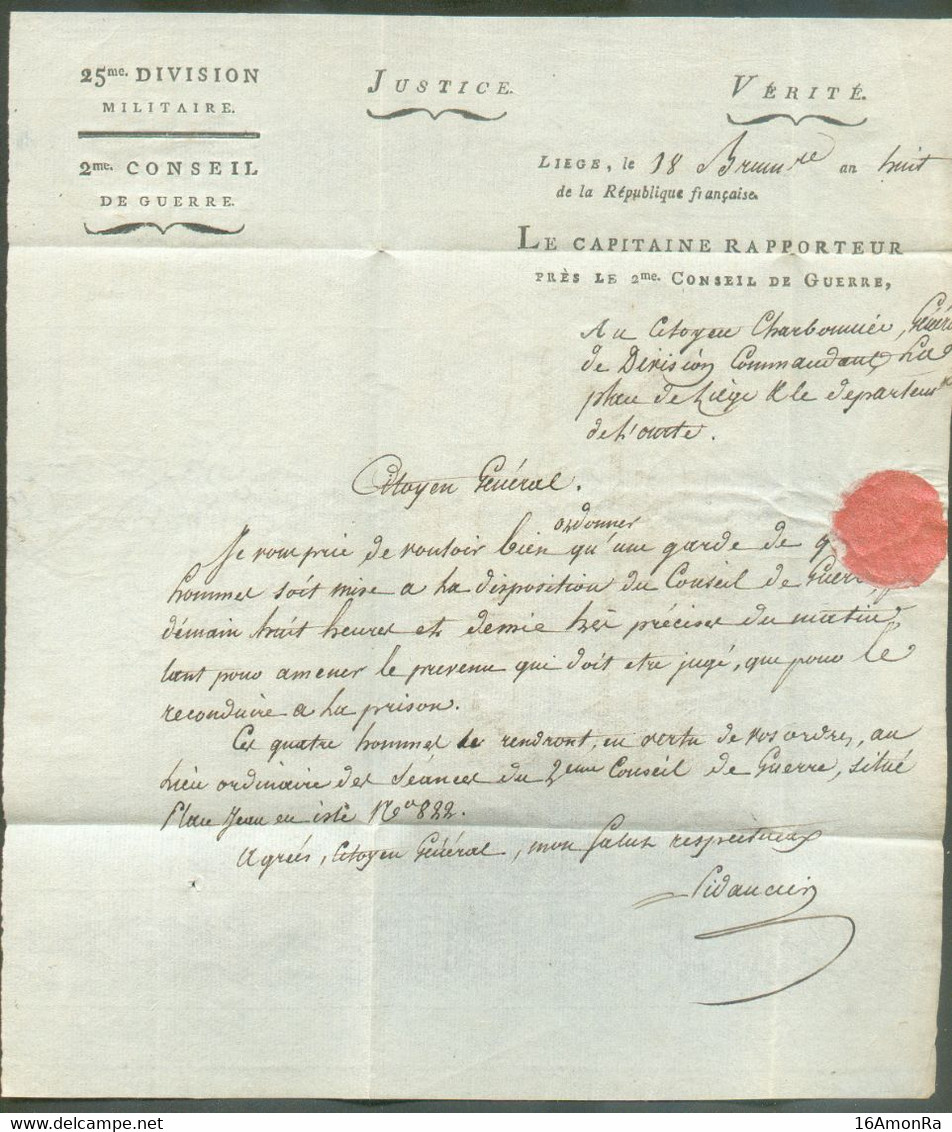 25me. DIVISION
MILITAIRE.
2me. CONSEIL
DE GUERRE.
JUSTICE.
VÉRITÉ.
LIEGE, le 18 Brumre an huit
de la République française.
LE CAPITAINE RAPPORTEUR
PRÈS LE 2me. CONSEIL DE GUERRE,
Au Citoyen Charbonnier, Génér
de Division Commandant La
place de Liège & le departemt
de L'ourte.
Citoyen Général.
ordonner
Je vous prie de vouloir bien qu'une garde de q
hommes soit mise a la disposition du Conseil de Guerre
démain huit heures et demie très précises du matin,
tant pour amener le prevenu qui doit etre jugé, que pour le
reconduire a la prison.
Ces quatre hommes se rendront, en vertu de vos ordres, au
lieu ordinaire des séances du 2eme Conseil de Guerre, situé
Place Jean en isle No 822.
Agréés, Citoyen Général, mon Salut respectueux
Pidancier
16AmonRa